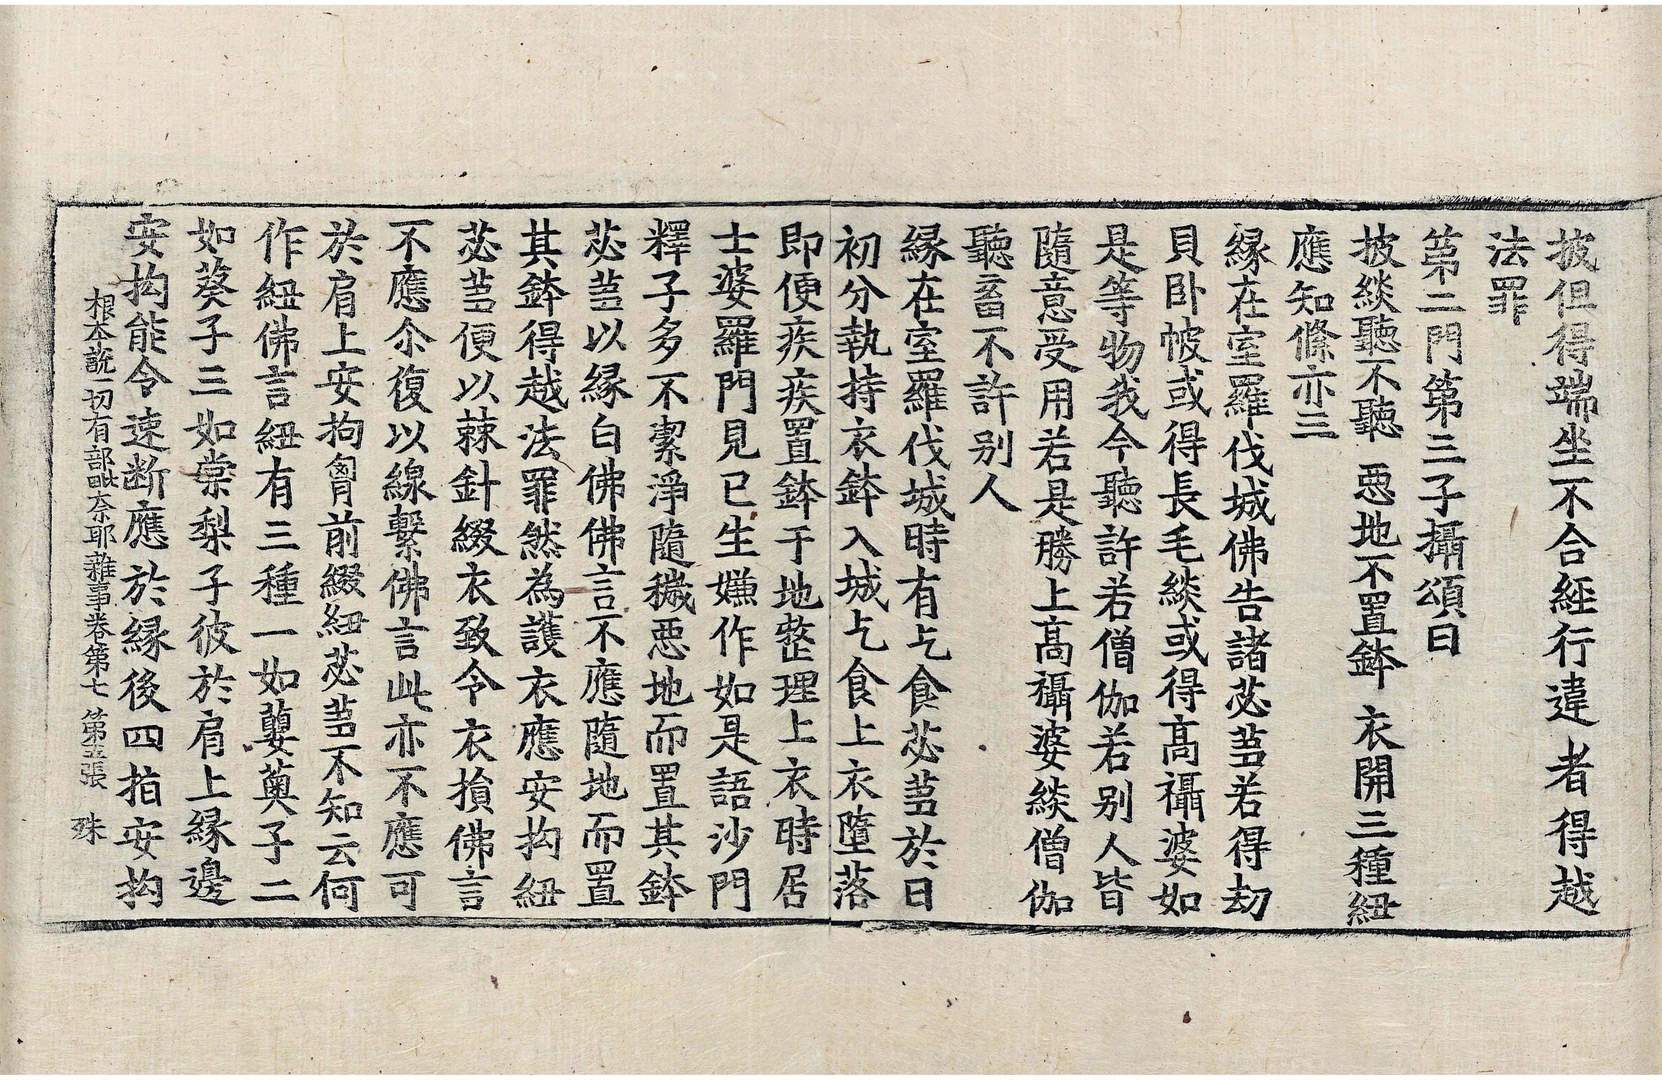 披但得端坐不合經行違者得越
法罪
第二門第三子攝頌曰
披緂聽不聽 惡地不置鉢 衣開三種紐
應知絛亦三
緣在室羅伐城佛告諸苾芻若得劫
貝卧帔或得長毛緂或得高襵婆如
是等物我今聽許若僧伽若別人皆
隨意受用若是勝上高襵婆緂僧伽
聽畜不許別人
緣在室羅伐城時有乞食苾芻於日
初分執持衣鉢入城乞食上衣墮落
即便疾疾置鉢于地整理上衣時居
士婆羅門見已生嫌作如是語沙門
釋子多不潔淨隨穢惡地而置其鉢
苾芻以緣白佛佛言不應隨地而置
其鉢得越法罪然為護衣應安拘紐
苾芻便以棘針綴衣致令衣損佛言
不應尒復以線繫佛言此亦不應可
於肩上安拘胷前綴紐苾芻不知云何
作紐佛言紐有三種一如蘡薁子二
如葵子三如棠梨子彼於肩上緣邊
安拘能令速断應於緣後四指安拘
根本說一切有部毗奈耶雜事卷第七 第五張 殊